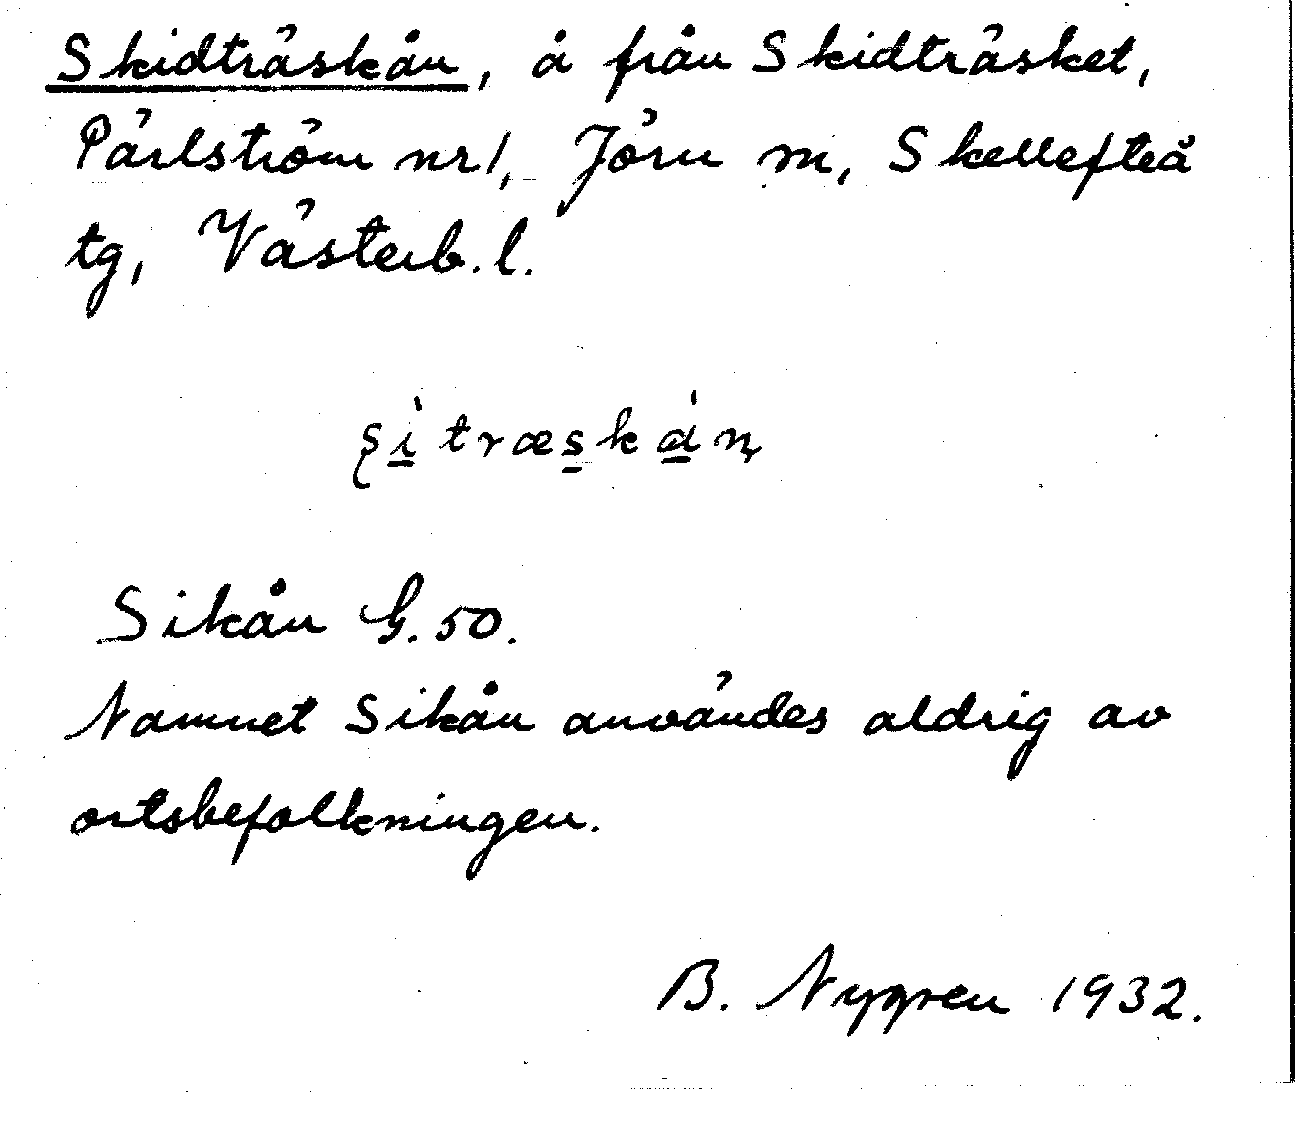 Skidträskån, å från Skidträsket,
Pärlström nr 1, Jörn m, Skellefteå
tg, Västerb. l.
Sikån G. 50.
Namnet Sikån användes aldrig av
ortsbefolkningen.
B. Nygren 1932.